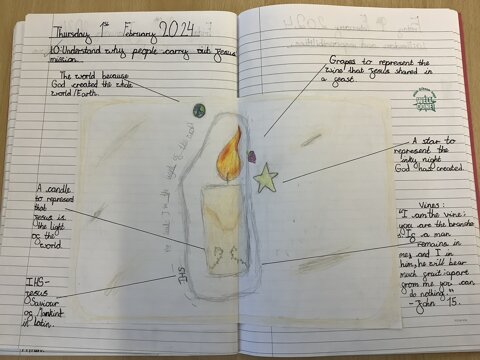 Thursday 1st February 2024
LO: Understand why people carry out Jesus'
mission.
The world because
God created the whole
world/Earth.
A candle
to represent
that
Jesus is
the light
of the
world.
IHS-
Jesus
Saviour
of Mankind
in latin.
IHS
the light of the world
Grapes to represent the
wine that Jesus shared in
a feast.
A star to
represent the
inky night
God had created.
Vines:
"I am the vine;
you are the branches
If a man
remains in
me, and I in
him, he will bear
much fruit; apart
from me you can
do nothing."
- John 15.